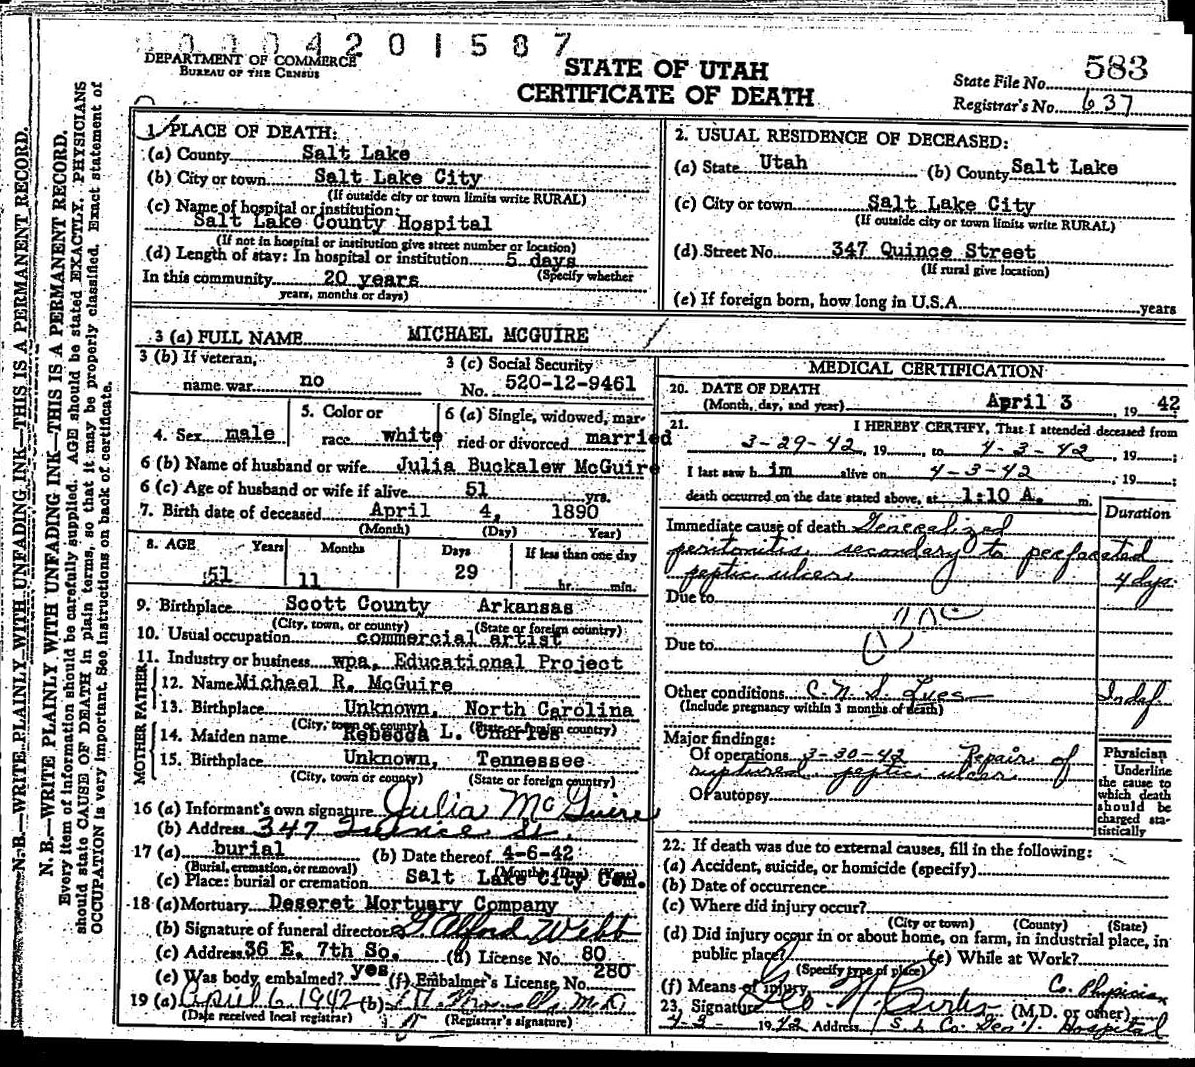 0 1 0 4 2 0 1 5 8 7
DEPARTMENT OF COMMERCE
BUREAU OF THE CENSUS
STATE OF UTAH
CERTIFICATE OF DEATH
State File No. 583
Registrar's No. 637
N. B.—WRITE PLAINLY WITH UNFADING INK—THIS IS A PERMANENT RECORD.
N. B.—WRITE PLAINLY WITH UNFADING INK—THIS IS A PERMANENT RECORD.
Every item of information should be carefully supplied. AGE should be stated EXACTLY. PHYSICIANS
should state CAUSE OF DEATH in plain terms, so that it may be properly classified. Exact statement of
OCCUPATION is very important. See instructions on back of certificate.
1. PLACE OF DEATH:
(a) County Salt Lake
(b) City or town Salt Lake City
(If outside city or town limits write RURAL)
(c) Name of hospital or institution:
Salt Lake County Hospital
(If not in hospital or institution give street number or location)
(d) Length of stay: In hospital or institution 5 days
(Specify whether
In this community 20 years
years, months or days)
2. USUAL RESIDENCE OF DECEASED:
(a) State Utah (b) County Salt Lake
(c) City or town Salt Lake City
(If outside city or town limits write RURAL)
(d) Street No. 347 Quince Street
(If rural give location)
(e) If foreign born, how long in U.S.A. years
3 (a) FULL NAME MICHAEL MCGUIRE
3 (b) If veteran,
name war no
3 (c) Social Security
No. 520-12-9461
4. Sex male
5. Color or
race white
6 (a) Single, widowed, mar-
ried or divorced married
6 (b) Name of husband or wife Julia Buckalew McGuire
6 (c) Age of husband or wife if alive 51 yrs.
7. Birth date of deceased April 4, 1890
(Month) (Day) Year)
8. AGE Years Months Days If less than one day
51 11 29 hr. min.
9. Birthplace Scott County Arkansas
(City, town, or county) (State or foreign country)
10. Usual occupation commercial artist
11. Industry or business wpa, Educational Project
FATHER
12. Name Michael R. McGuire
13. Birthplace Unknown, North Carolina
(City, town or county) (State or foreign country)
MOTHER
14. Maiden name Rebecca L. Charles
15. Birthplace Unknown, Tennessee
(City, town or county) (State or foreign country)
16 (a) Informant's own signature Julia McGuire
(b) Address 347 Quince St.
17 (a) burial (b) Date thereof 4-6-42
(Burial, cremation, or removal) (Month) (Day) (Year)
(c) Place: burial or cremation Salt Lake City Cem.
18 (a) Mortuary Deseret Mortuary Company
(b) Signature of funeral director G. Alford Webb
(c) Address 36 E. 7th So. (d) License No. 80
(e) Was body embalmed? yes (f) Embalmer's License No. 280
19 (a) April 6 1942 (b) M.D.
(Date received local registrar) (Registrar's signature)
MEDICAL CERTIFICATION
20. DATE OF DEATH
(Month, day, and year) April 3, 19 42
21. I HEREBY CERTIFY, That I attended deceased from
3-29-42, 19 , to 4-3-42, 19 ;
I last saw h im alive on 4-3-42, 19 ;
death occurred on the date stated above, at 1:10 A. m.
Duration
Immediate cause of death Generalized
peritonitis, secondary to perforated
peptic ulcer. 4 days
Due to
Due to
Other conditions C. N. S. Lues Indef.
(Include pregnancy within 3 months of death)
Major findings:
Of operations 3-30-42 Repair of
ruptured peptic ulcer.
Of autopsy
Physician
Underline
the cause to
which death
should be
charged sta-
tistically
22. If death was due to external causes, fill in the following:
(a) Accident, suicide, or homicide (specify)
(b) Date of occurrence
(c) Where did injury occur?
(City or town) (County) (State)
(d) Did injury occur in or about home, on farm, in industrial place, in
public place? (e) While at Work?
(Specify type of place)
(f) Means of injury Co. Physician
23. Signature Geo. N. Curtis (M.D. or other)
4-3- 19 42 Address S L Co. Gen'l. Hospital